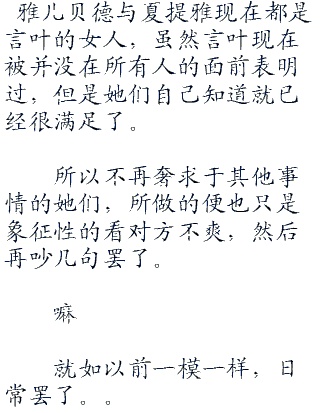 雅儿贝德与夏提雅现在都是
言叶的女人，虽然言叶现在
被并没在所有人的面前表明
过，但是她们自己知道就已
经很满足了。
所以不再奢求于其他事
情的她们，所做的便也只是
象征性的看对方不爽，然后
再吵几句罢了。
嘛
就如以前一模一样，日
常罢了。。